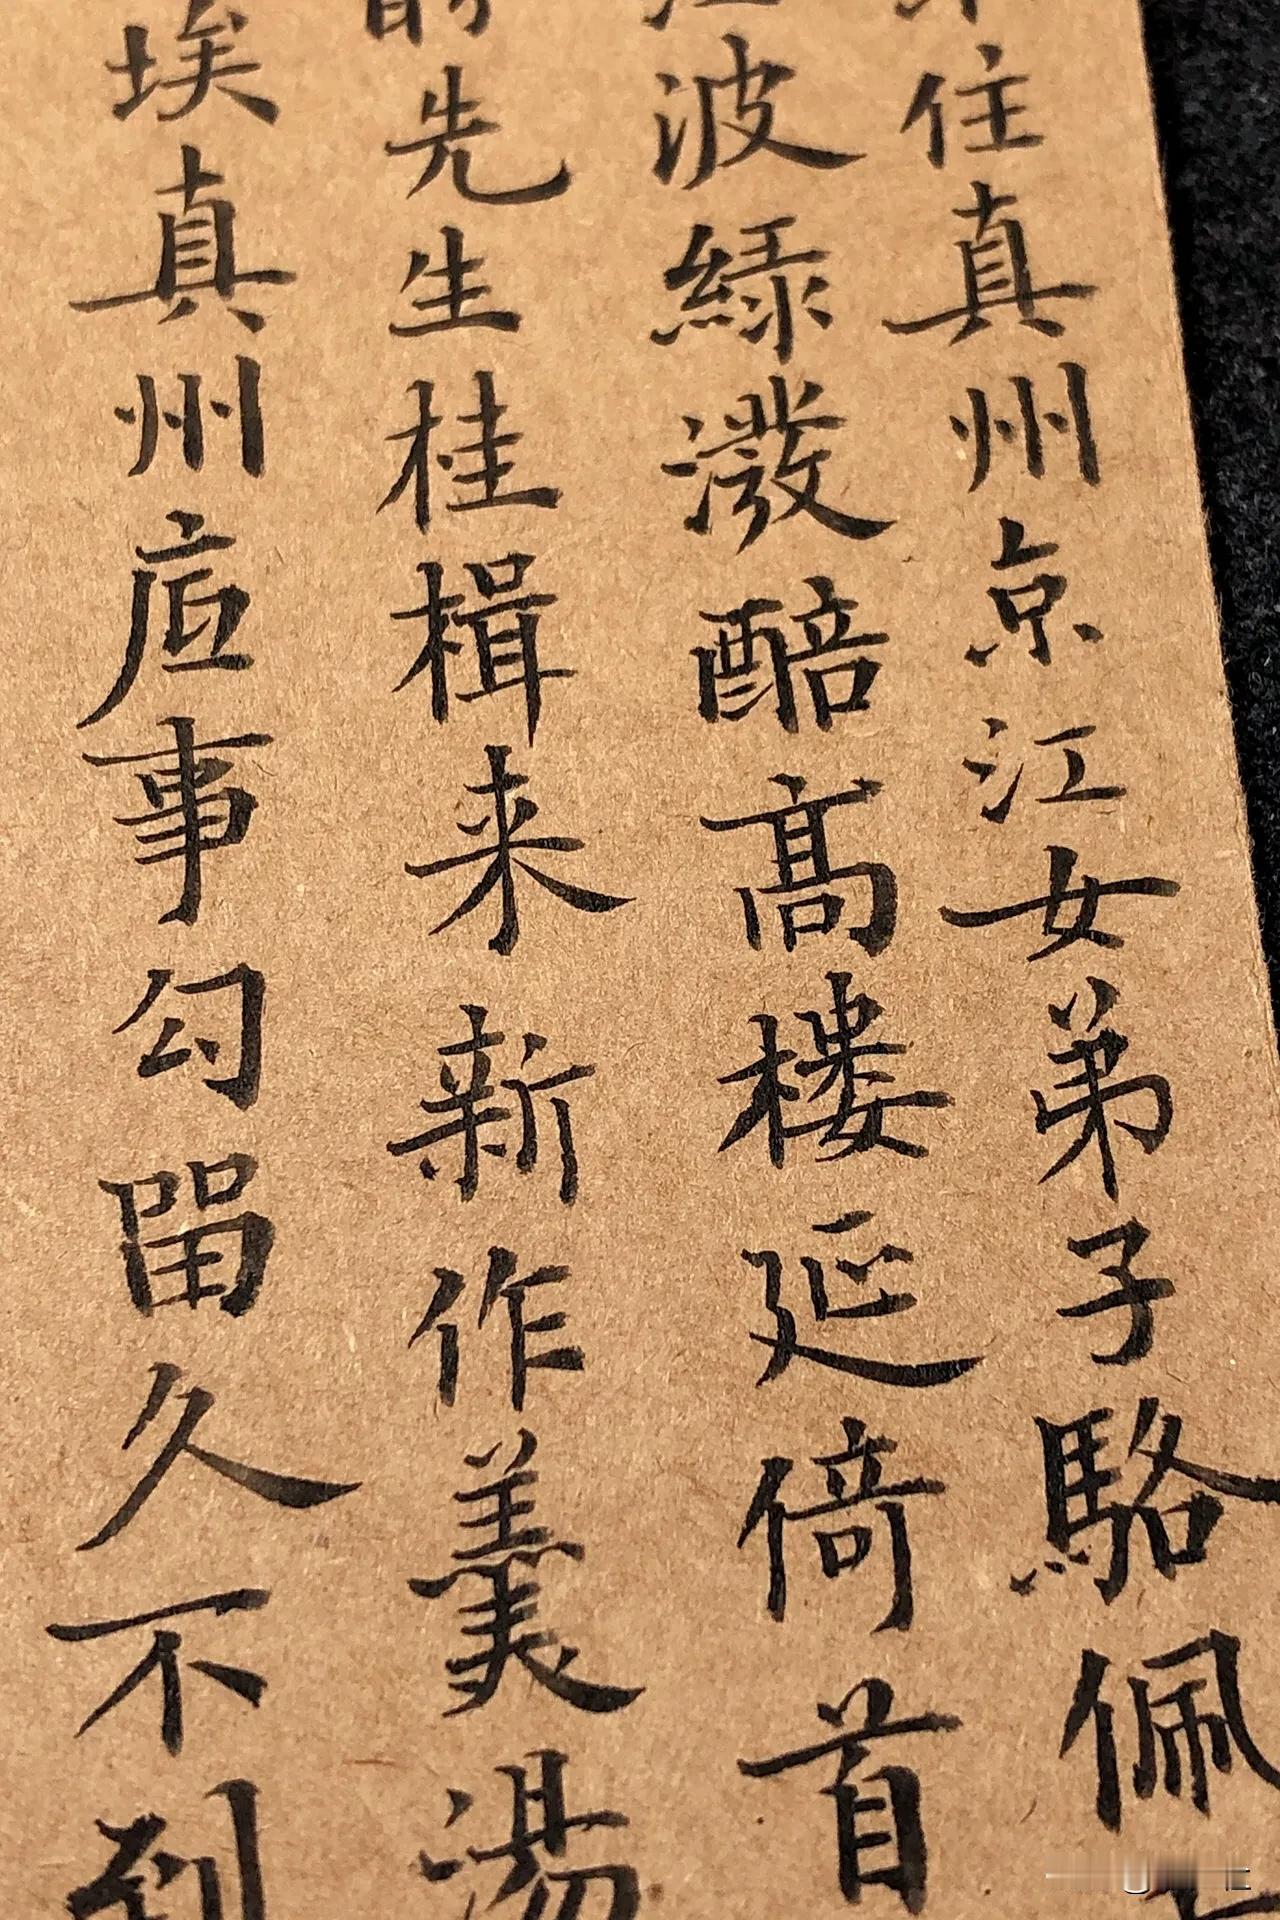 住真州京江女弟子駱佩
波緑潑醅高楼延倚首
先生桂楫来新作羹湯
埃真州㕔事勾留久不到